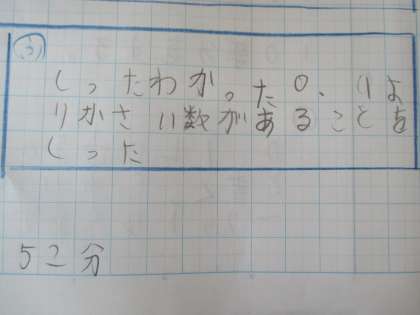 ふ
しったわかった0、1よ
りかさい数があることを
しった
52分